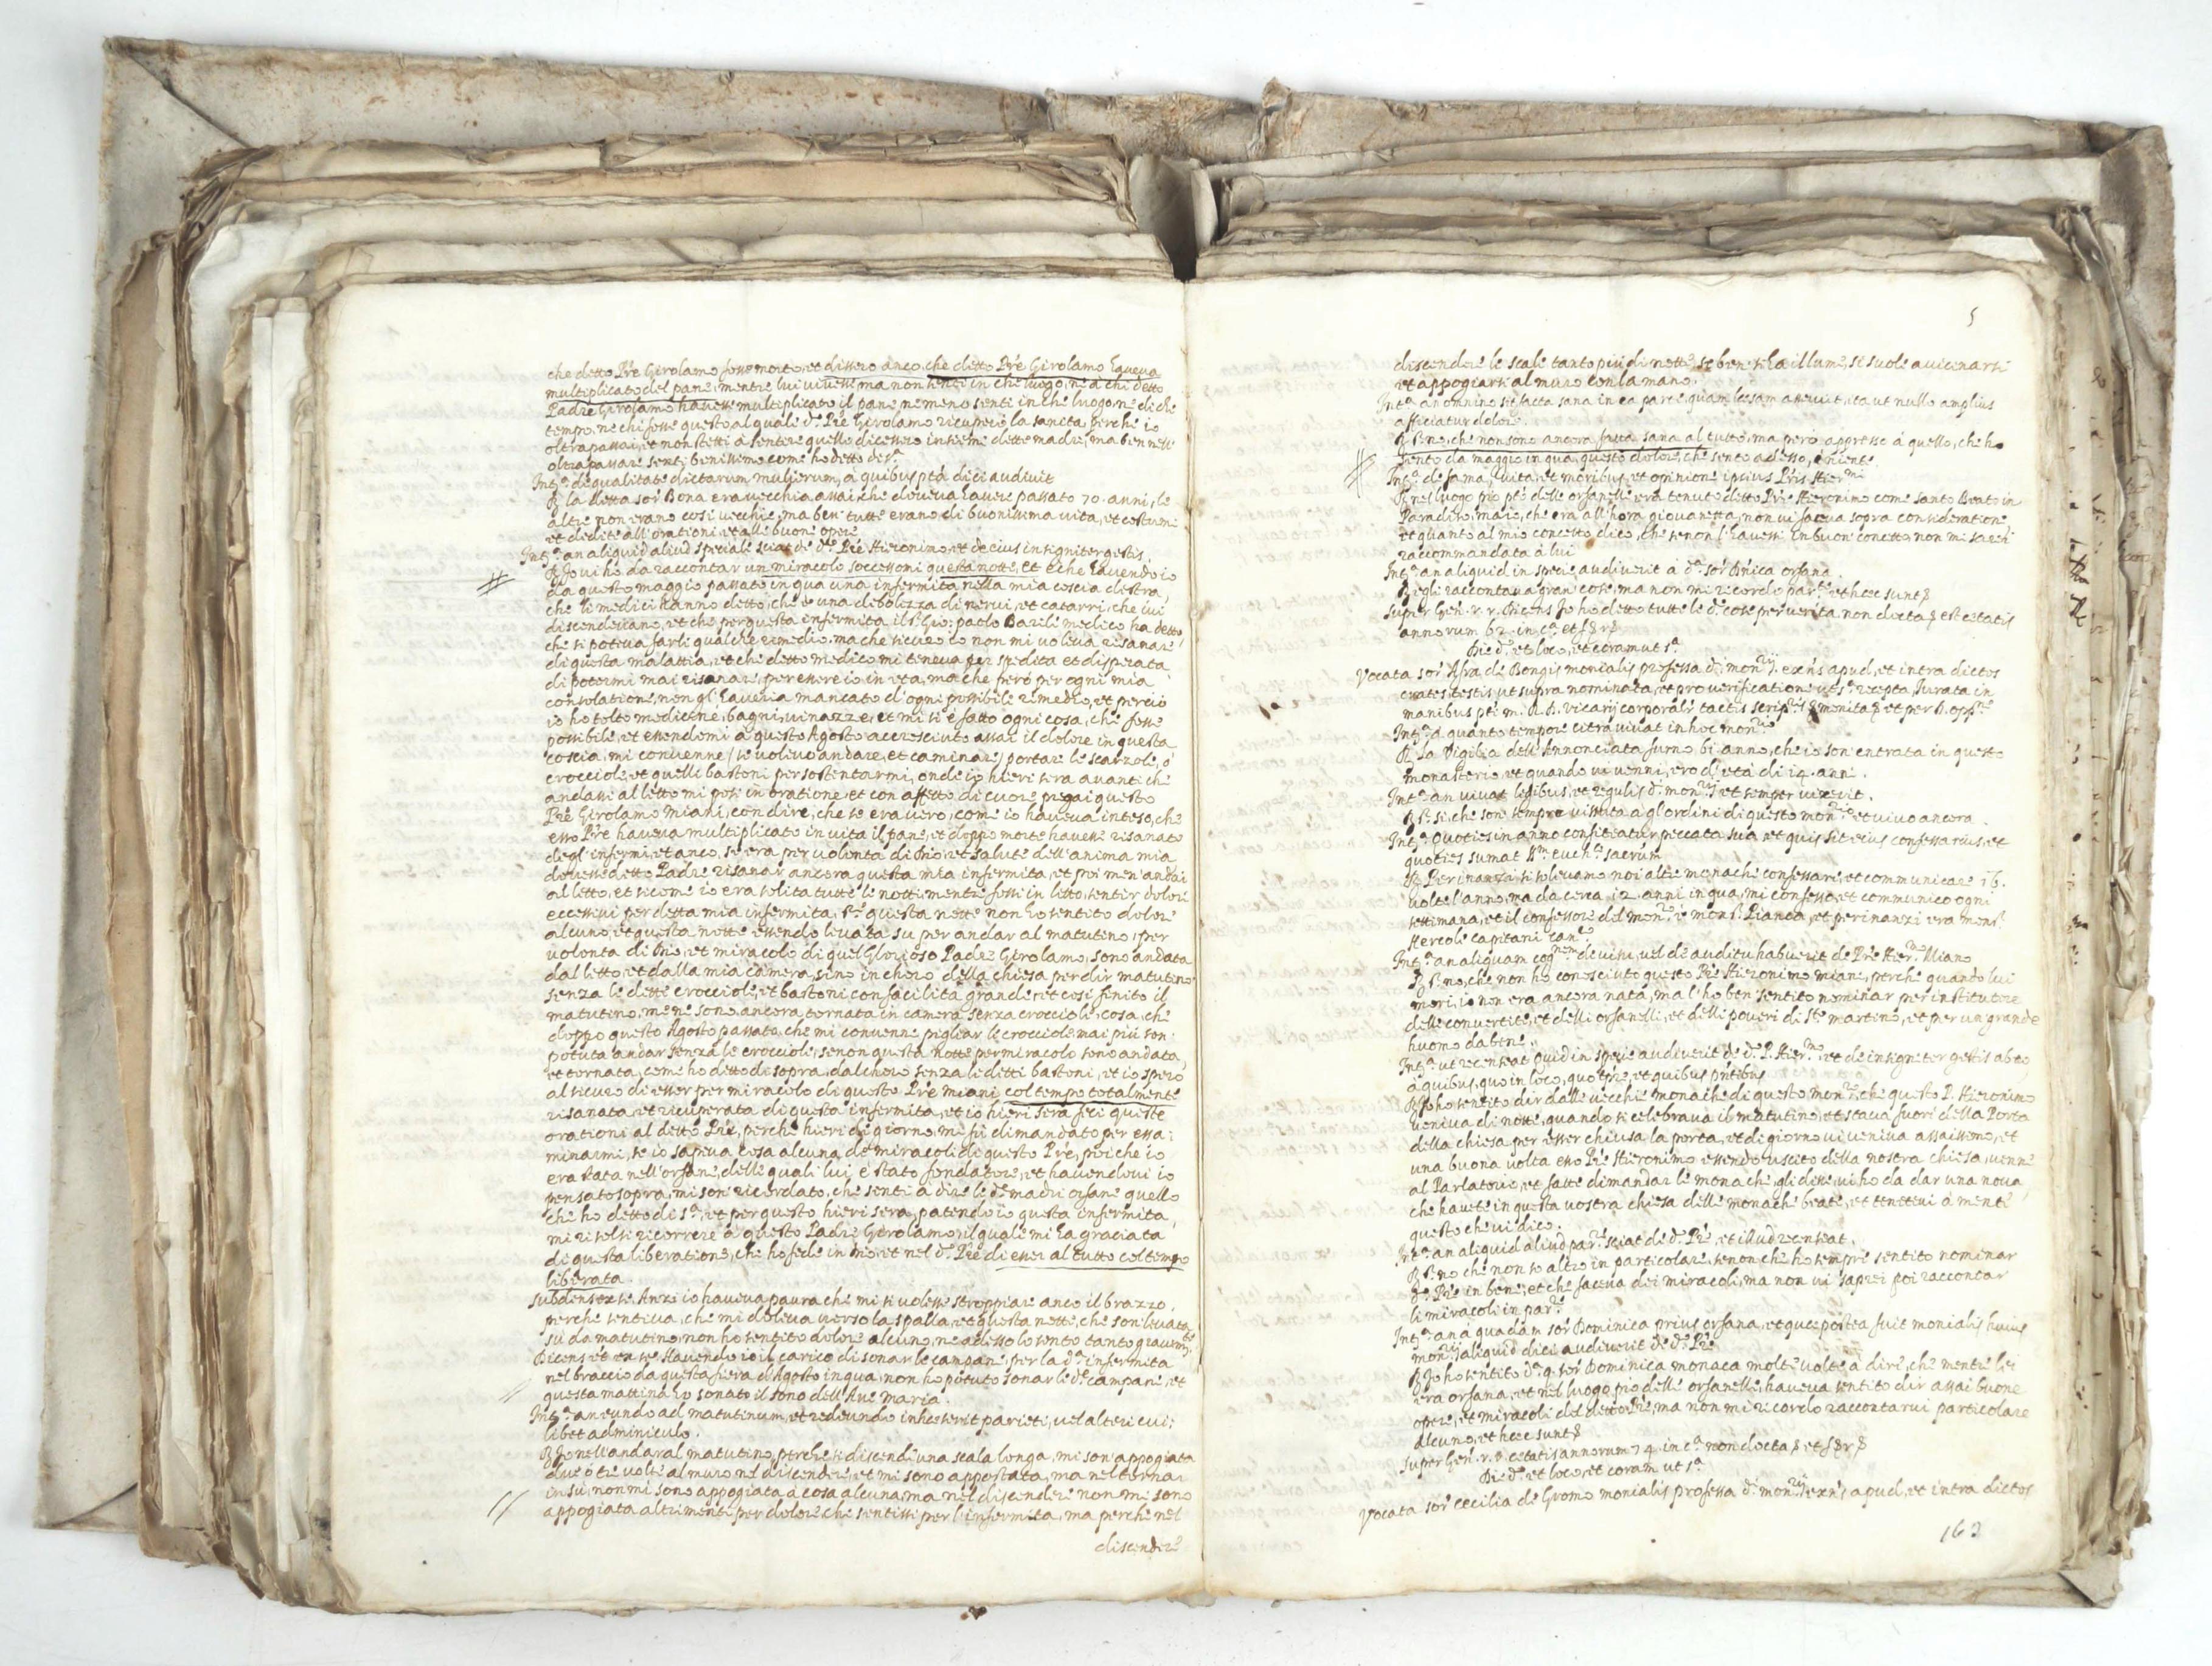 che detto Pre Girolamo fosse morto, et dissero anco, che detto Pre Girolamo haveva
multiplicato del pane, mentre lui vivesse, ma non senti in che luogo, ne à chi detto
Padre Girolamo havesse multiplicato il pane, ne meno senti in che luogo, ne di che
tempo, ne chi fosse questo al quale d.º Pre Girolamo ricuperò la sanità, perche io
oltrapassai, et non stetti à sentire quello dicessero insieme dette madri, ma ben nell'
oltrapassare senti benissimo come ho detto di s.ª
Int.ª de qualitate dictarum mulierum, à quibus pta dici audivit
R. la detta sor Bona era vecchia assai, che doveva havere passato 70. anni, le
altre non erano così vecchie, ma ben tutte erano di buonissima vita, et costumi
et dedite all'orationi, et alle buone opere
Int.ª an aliquid aliud speciale sciat de d.º Pre Hieronimo, et de eius insigniter gestis.
R. Io vi ho da raccontar un miracolo soccessomi questa notte, et è che havendo io
da questo maggio passato in qua una infermità nella mia coscia destra,
che li medici hanno detto, che è una debolezza di nervi, et catarri, che ivi
discendevano, et che per questa infermità il s.r Gio: paolo Barile medico ha detto,
che si poteva farli qualche remedio, ma che sicuro io non mi voleva risanare
di questa malattia, et che detto medico mi teneva per spedita et disperata
di potermi mai risanare, per essere io in età, ma che però per ogni mia
consolatione, non gl'haveria mancato d'ogni possibile remedio, et perciò
io ho tolto medicine, bagni, vinazze, et mi si è fatto ogni cosa, che fosse
possibile, et essendomi à questo Agosto accresciuto assai il dolore in questa
coscia, mi convenne /se volevo andare, et caminare/ portare le scarzole, ò
crocciole, et quelli bastoni per sostentarmi, onde io hieri sera avanti che
andassi al letto mi posi in oratione, et con affetto di cuore pregai questo
Pre Girolamo Miani, con dire, che se era vero, come io haveva inteso, che
esso Pre haveva multiplicato in vita il pane, et doppo morte havesse risanato
degl'infermi, et anco, se era per volontà di Dio, et salute dell'anima mia
dovesse detto Padre risanar ancora questa mia infermità, et poi men'andai
al letto, et sicome io era solita tutte le notti, mentre fossi in letto, sentir dolori
eccessivi per detta mia infermità, questa notte non ho sentito dolore
alcuno, et questa notte essendo levata su per andar al matutino, per
volontà di Dio, et miracolo di quel Glorioso Padre Girolamo, sono andata
dal letto, et dalla mia camera, sino in choro della chiesa per dir matutino
senza le dette crocciole, et bastoni con facilità grande, et così finito il
matutino, me ne sono ancora tornata in camera senza crocciole, cosa, che
doppo questo Agosto passato, che mi convenne pigliar le crocciole mai più son
potuta andar senza le crocciole, se non questa notte per miracolo sono andata,
et tornata, come ho detto di sopra, dal choro senza li detti bastoni, et io spero
al sicuro di esser per miracolo di questo Pre Miani col tempo totalmente
risanata, et ricuperata di questa infermità, et io hieri sera feci queste
orationi al detto Pre, perche hieri di giorno, mi fù dimandato per essa-
minarmi, se io sapeva cosa alcuna de miracoli di questo Pre, poiche io
era stata nell'orfane, delle quali lui è stato fondatore, et havendovi io
pensato sopra, mi son ricordato, che senti à dire le d.e madri orfane quello
che ho detto di s.ª, et per questo hieri sera, patendo io questa infermità,
mi risolsi ricorrere à questo Padre Girolamo, il quale mi ha graciata
di questa liberatione, che ho fede in Dio, et nel d.º Pre di esser al tutto col tempo
liberata.
Subdens ex se. Anzi io haveva paura che mi si volesse stroppiare anco il brazzo,
perche sentiva, che mi doleva verso la spalla, et questa notte, che son levata
sù da matutino, non ho sentito dolore alcuno, ne adesso lo sento tanto gravem.te
Dicens et ex se Havendo io il carico di sonar le campane, per la d.ª infermità
nel braccio da questa fiera d'Agosto in qua, non ho potuto sonar le d.e campane, et
questa mattina ho sonato il sono dell'Ave Maria.
Int.ª an eundo ad matutinum, et redeundo inheserit parieti, vel alteri cui-
libet adminiculo.
R. Io nell'andar al matutino, perche si discende una scala longa, mi son appogiata
due ò tre volte al muro nel discendere, et mi sono appostata, ma nel tornar
in sù, non mi sono appogiata à cosa alcuna, ma nel discendere non mi sono
appogiata altrimenti per dolore che sentissi per l'infermità, ma perche nel
discendere
5
discendere le scale tanto più di notte, se ben si ha il lume, si suole avicinarsi
et appogiarsi al muro con la mano.
Int.ª an omnino sit facta sana in ea parte quam lesam asseruit, ita ut nullo amplius
afficiatur dolore.
R. no, che non sono ancora fatta sana al tutto, ma però appresso à quello, che ho
sento da maggio in qua, questo dolore, che sento adesso, è niente.
Int.ª de fama, vita, et moribus, et opinione ipsius Pris Hier.mi
R. nel luogo pio pto delle orfanelle era tenuto detto Pre Hieronimo come santo Beato in
Paradiso, ma io, che era all'hora giovanetta, non vi faceva sopra consideratione,
et quanto al mio concetto dico, che se non l'havessi in buon concetto non mi sarei
raccommandata à lui
Int.ª an aliquid in specie audiverit à d.ª sor Dnica orfana.
R. egli raccontava gran cose, ma non mi ricordo par.re et haec sunt &
Super Gen. r. r. Dicens Io ho detto tutte le d.e cose per verità, non docta & est etatis
annorum 62. in c.ª et &
Die d.º et loco, et coram ut s.ª
Vocata sor Afra de Bongis monialis professa d.i mon.rij exns apud, et intra dictos
crates testis ut supra nominata, et pro verificatione ut s.ª recepta, Iurata in
manibus pti m. R. D. Vicarij corporalr tactis scrip.ris & monita & et per D. opp.te
Int.ª à quanto tempore citra vivat in hoc mon.rio
R. La Vigilia dell'Annonciata furno 61 anno, che io son entrata in questo
monasterio, et quando vi venni, ero d'età di 14. anni.
Int.ª an vivat legibus, et regulis d.i mon.rij et semper vixerit.
R. si, che son sempre vissuta a gl'ordini di questo mon.rio et vivo ancora.
Int.ª Quoties in anno confiteatur peccata sua, et quis sit eius confessarius, et
quoties sumat SS.m euch.e sacrum
R. Per inanzi si solevamo noi altre monache confessare, et communicare 16.
volte l'anno, ma da cerca 12. anni in qua, mi confesso, et communico ogni
settimana, et il confessore del mon.rio è mons.r Pianca, et per inanzi era mons.r
Hercole capitani
Int.ª an aliquam cog.nem de visu, vel de auditu habuerit de Pre Hier.mo Miano
R. no, che non ho conosciuto questo Pre Hieronimo miani, perche quando lui
morì, io non era ancora nata, ma l'ho ben sentito nominar per institutore
delle convertite, et delli orfanelli, et delli poveri di S.to martino, et per un grande
huomo da bene.
Int.ª ut recenseat quid in specie audiverit de d.º P. Hier.mo, et de insigniter gestis ab eo,
à quibus, quo in loco, quo tpre, et quibus pntibus
R. Io ho sentito dir dalle vecchie monache di questo mon.rio che questo P. Hieronimo
veniva di notte, quando si celebrava il matutino, et stava fuori della Porta
della chiesa per esser chiusa la porta, et di giorno vi veniva assaissimo, et
una buona volta esso Pre Hieronimo essendo uscito della nostra chiesa, venne
al Parlatorio, et fatte dimandar le monache, gli disse, vi ho da dar una nova,
che havete in questa vostra chiesa delle monache beate, et tenetevi à mente
questo che vi dico.
Int.ª an aliquid aliud par.re sciat de d.º Pre, et illud recenseat.
R. no che non so altro in particolare, se non che ho sempre sentito nominar
d.º Pre in bene, et che faceva dei miracoli, ma non vi saprei poi raccontar
li miracoli in par.re
Int.ª an à quadam sor Dominica prius orfana, et quae postea fuit monialis huius
mon.rij aliquid dici audiverit de d.º Pre
R. Io ho sentito d.ª q. sor Dominica monaca molte volte à dire, che mentre lei
era orfana, et nel luogo pio delle orfanelle, haveva sentito dir assai buone
opere, et miracoli del detto Pre, ma non mi ricordo raccontarvi particolare
alcuno, et haec sunt &
Super Gen. r. r. aetatis annorum 74. in c.ª non docta & et &
Die d.º et loco, et coram ut s.ª
Vocata sor Cecilia de Gromo monialis professa d.i mon.rij exns apud, et intra dictos
163